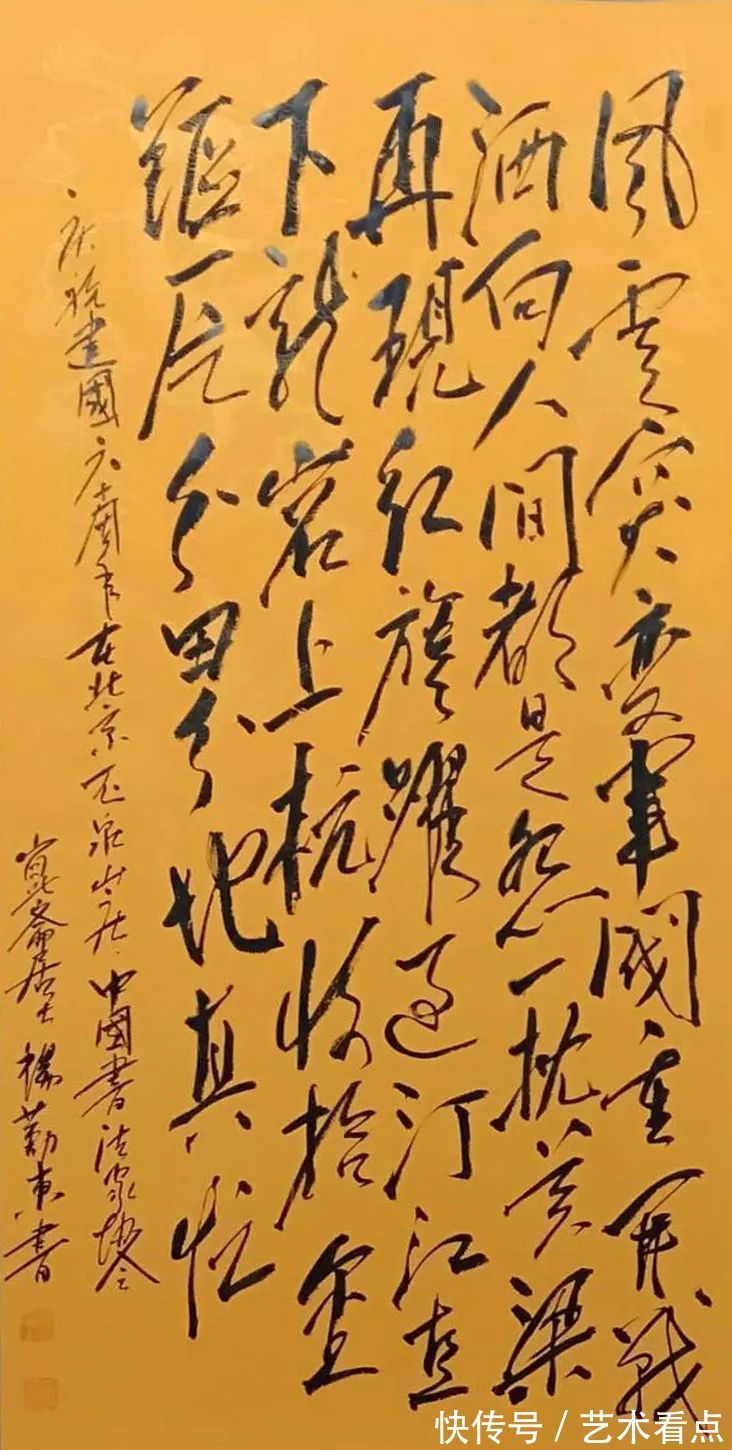 风雲突變軍閥重開戰
洒向人間都是怨一枕黄粱
再現红旗躍過汀江直
下龍岩上杭收拾金
甌一片分田分地真忙
庆祝建國六十周年在北京玉泉山庄中國書法家協会
斋居士楊勤東書
快传号/艺术看点